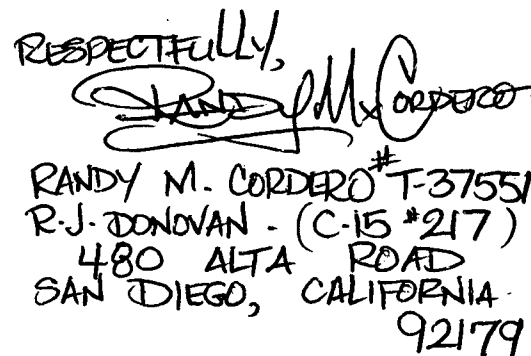 RESPECTFULLY,
RANDY M. CORDERO
RANDY M. CORDERO # T-37551
R.J. DONOVAN - (C-15 #217)
480 ALTA ROAD
SAN DIEGO, CALIFORNIA.
92179